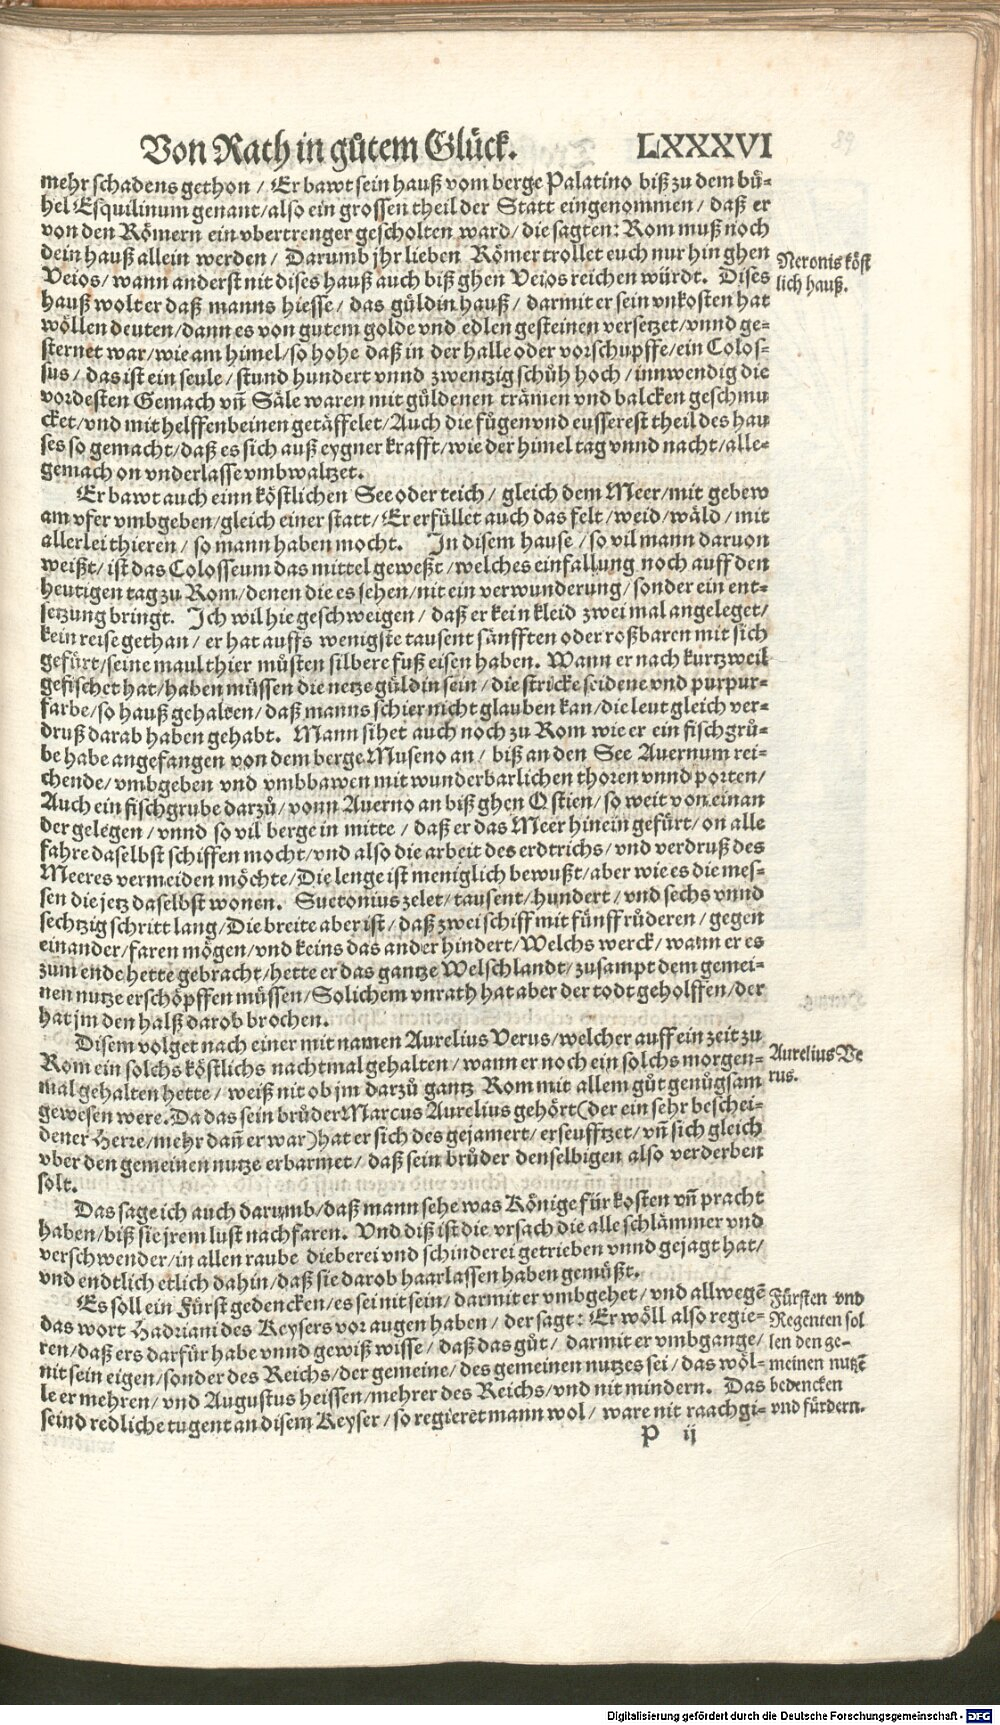 Von Rath in gůtem Glück. LXXXVI
89
mehr schadens gethon / Er bawt sein hauß vom berge Palatino biß zu dem bü-
hel Esquilinum genant / also ein grossen theil der Statt eingenommen / daß er
von den Römern ein vbertrenger gescholten ward / die sagten: Rom muß noch
dein hauß allein werden / Darumb jhr lieben Römer trollet euch nur hin ghen
Veios / wann anderst nit dises hauß auch biß ghen Veios reichen würdt. Dises
Neronis köst
lich hauß.
hauß wolt er daß manns hiesse / das güldin hauß / darmit er sein vnkosten hat
wöllen deuten / dann es von gutem golde vnd edlen gesteinen versetzet / vnnd ge-
sternet war / wie am himel / so hohe daß in der halle oder vorschupffe / ein Colos-
sus / das ist ein seule / stund hundert vnnd zwentzig schůh hoch / innwendig die
vordesten Gemach vñ Säle waren mit güldenen trämen vnd balcken geschmu
cket / vnd mit helffenbeinen getäffelet / Auch die fůgen vnd eusserest theil des hau
ses so gemacht / daß es sich auß eygner krafft / wie der himel tag vnnd nacht / alle-
gemach on vnderlasse vmbwaltzet.
Er bawt auch einn köstlichen See oder teich / gleich dem Meer / mit gebew
am vfer vmbgeben / gleich einer statt / Er erfüllet auch das felt / weid / wäld / mit
allerlei thieren / so mann haben mocht. In disem hause / so vil mann daruon
weißt / ist das Colosseum das mittel geweßt / welches einfallung noch auff den
heutigen tag zu Rom / denen die es sehen / nit ein verwunderung / sonder ein ent-
setzung bringt. Ich wil hie geschweigen / daß er kein kleid zwei mal angeleget /
kein reise gethan / er hat auffs wenigste tausent sänfften oder roßbaren mit sich
gefürt / seine maulthier můsten silbere fuß eisen haben. Wann er nach kurtzweil
gefischet hat / haben müssen die netze güldin sein / die stricke seidene vnd purpur-
farbe / so hauß gehalten / daß manns schier nicht glauben kan / die leut gleich ver-
druß darab haben gehabt. Mann sihet auch noch zu Rom wie er ein fischgrů-
be habe angefangen von dem berge Museno an / biß an den See Auernum rei-
chende / vmbgeben vnd vmbbawen mit wunderbarlichen thoren vnnd porten /
Auch ein fischgrube darzů / vonn Auerno an biß ghen Ostien / so weit von einan
der gelegen / vnnd so vil berge in mitte / daß er das Meer hinein gefürt / on alle
fahre daselbst schiffen mocht / vnd also die arbeit des erdtrichs / vnd verdruß des
Meeres vermeiden möchte / Die lenge ist meniglich bewußt / aber wie es die mes-
sen die jetz daselbst wonen. Suetonius zelet / tausent / hundert / vnd sechs vnnd
sechtzig schritt lang / Die breite aber ist / daß zwei schiff mit fünff růderen / gegen
einander / faren mögen / vnd keins das ander hindert / Welchs werck / wann er es
zum ende hette gebracht / hette er das gantze Welschlandt / zusampt dem gemei-
nen nutze erschöpffen müssen / Solichem vnrath hat aber der todt geholffen / der
hat jm den halß darob brochen.
Disem volget nach einer mit namen Aurelius Verus / welcher auff ein zeit zu
Aurelius Ve
rus.
Rom ein solchs köstlichs nachtmal gehalten / wann er noch ein solchs morgen-
mal gehalten hette / weiß nit ob jm darzů gantz Rom mit allem gůt genůgsam
gewesen were. Da das sein brůder Marcus Aurelius gehört (der ein sehr beschei-
dener Herre / mehr dañ er war) hat er sich des gejamert / erseufftzet / vñ sich gleich
vber den gemeinen nutze erbarmet / daß sein brůder denselbigen also verderben
solt.
Das sage ich auch darumb / daß mann sehe was Könige für kosten vñ pracht
haben / biß sie jrem lust nachfaren. Vnd diß ist die vrsach die alle schlämmer vnd
verschwender / in allen raube dieberei vnd schinderei getrieben vnnd gejagt hat /
vnd endtlich etlich dahin / daß sie darob haar lassen haben gemůßt.
Es soll ein Fürst gedencken / es sei nit sein / darmit er vmbgehet / vnd allwegē
Fürsten vnd
Regenten sol
len den ge-
meinen nutzē
bedencken
vnd fürdern.
das wort Hadriani des Keysers vor augen haben / der sagt: Er wöll also regie-
ren / daß ers darfür habe vnnd gewiß wisse / daß das gůt / darmit er vmbgange /
nit sein eigen / sonder des Reichs / der gemeine / des gemeinen nutzes sei / das wöl-
le er mehren / vnd Augustus heissen / mehrer des Reichs / vnd nit mindern. Das
seind redliche tugent an disem Keyser / so regieret mann wol / ware nit raachgi-
P ij
Digitalisierung gefördert durch die Deutsche Forschungsgemeinschaft - DFG